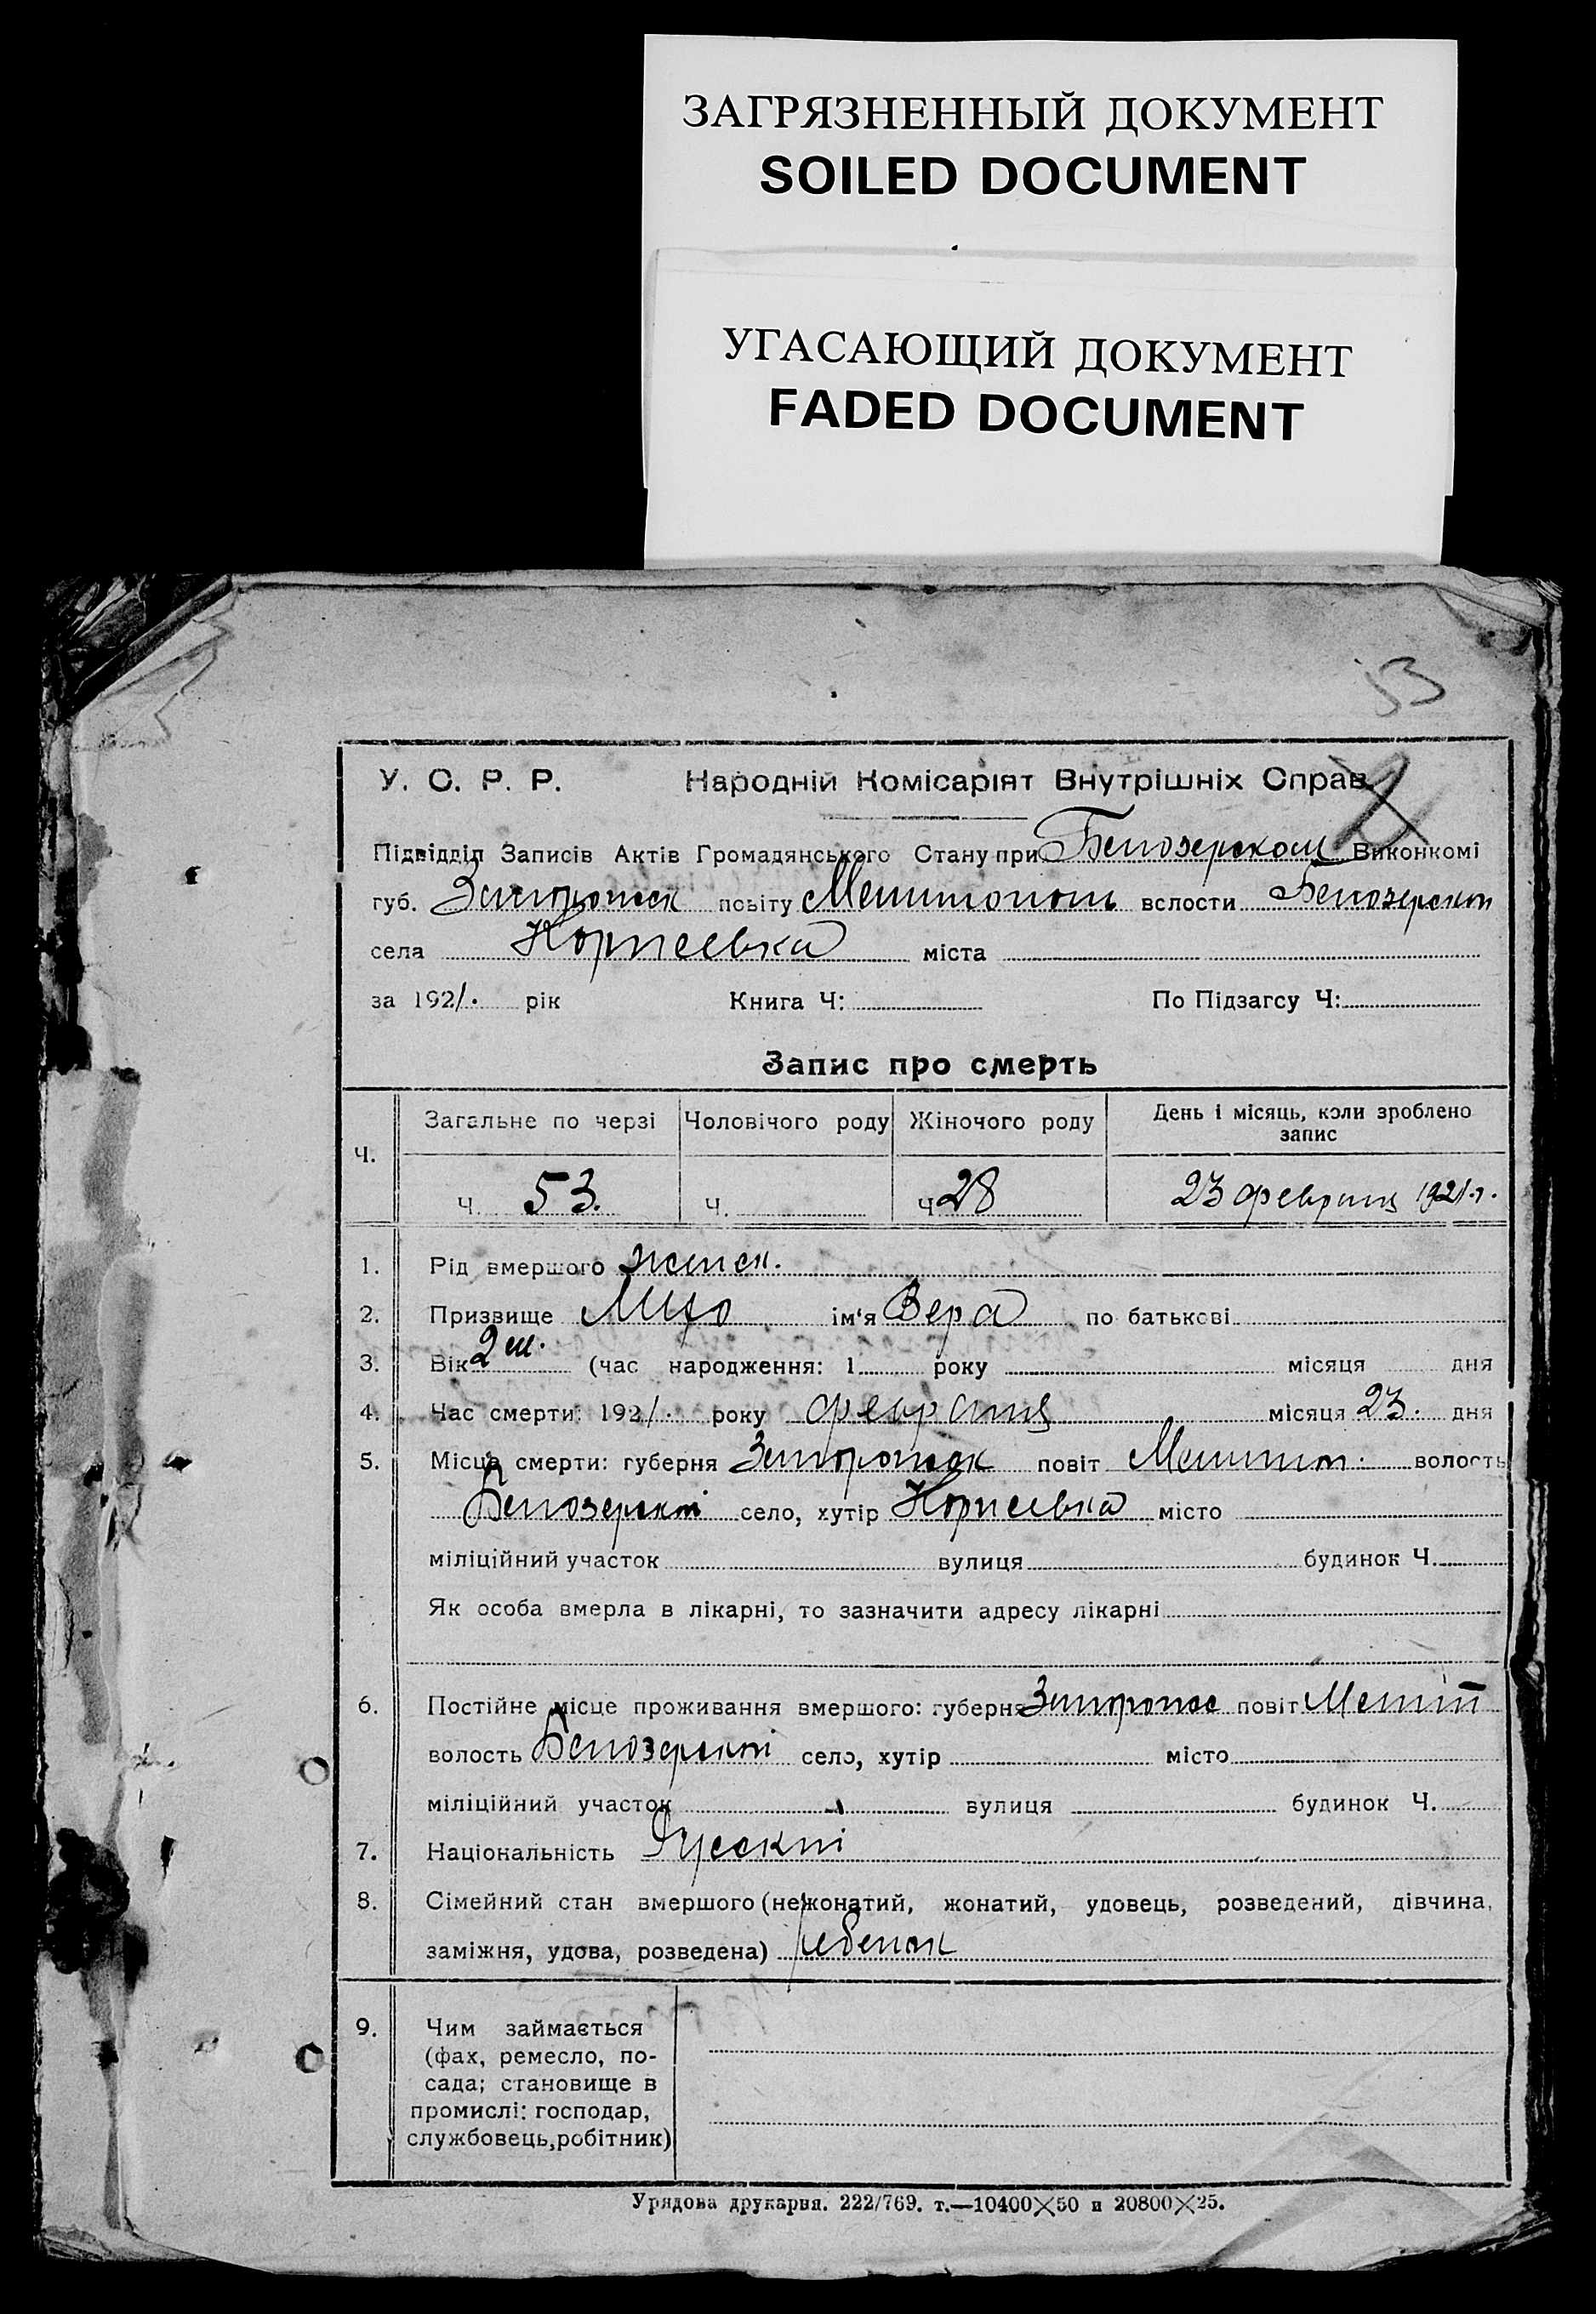 ЗАГРЯЗНЕННЫЙ ДОКУМЕНТ
SOILED DOCUMENT
УГАСАЮЩИЙ ДОКУМЕНТ
FADED DOCUMENT
53
У. С. Р. Р. Народній Комісаріят Внутрішніх Справ
Підвідділ Записів Актів Громадянського Стану при Белозерском Виконкомі
губ. Запорожск повіту Мелитополь волости Белозерской
села Корнеевка міста
за 1921. рік Книга Ч: По Підзагсу Ч:
Запис про смерть
Ч. Загальне по черзі Чоловічого роду Жіночого роду День і місяць, коли зроблено запис
Ч. 53. Ч. Ч 28 23 февраля 1921 г.
1. Рід вмершого женск.
2. Призвище ім'я Вера по батькові
3. Вік 2 м. (час народження: 1 року місяця дня
4. Час смерти: 1921. року февраля місяця 23. дня
5. Місце смерти: губерня Запорожск повіт Мелитоп. волость
Белозерской село, хутір Корнеевка місто
міліційний участок вулиця будинок Ч.
Як особа вмерла в лікарні, то зазначити адресу лікарні
6. Постійне місце проживання вмершого: губерня Запорож повіт Мелит
волость Белозерской село, хутір місто
міліційний участок вулиця будинок Ч.
7. Національність Русский
8. Сімейний стан вмершого (нежонатий, жонатий, удовець, розведений, дівчина,
заміжня, удова, розведена) ребенок
9. Чим займається
(фах, ремесло, по-
сада; становище в
промислі: господар,
службовець,робітник)
Урядова друкарня. 222/769. т.—10400×50 и 20800×25.